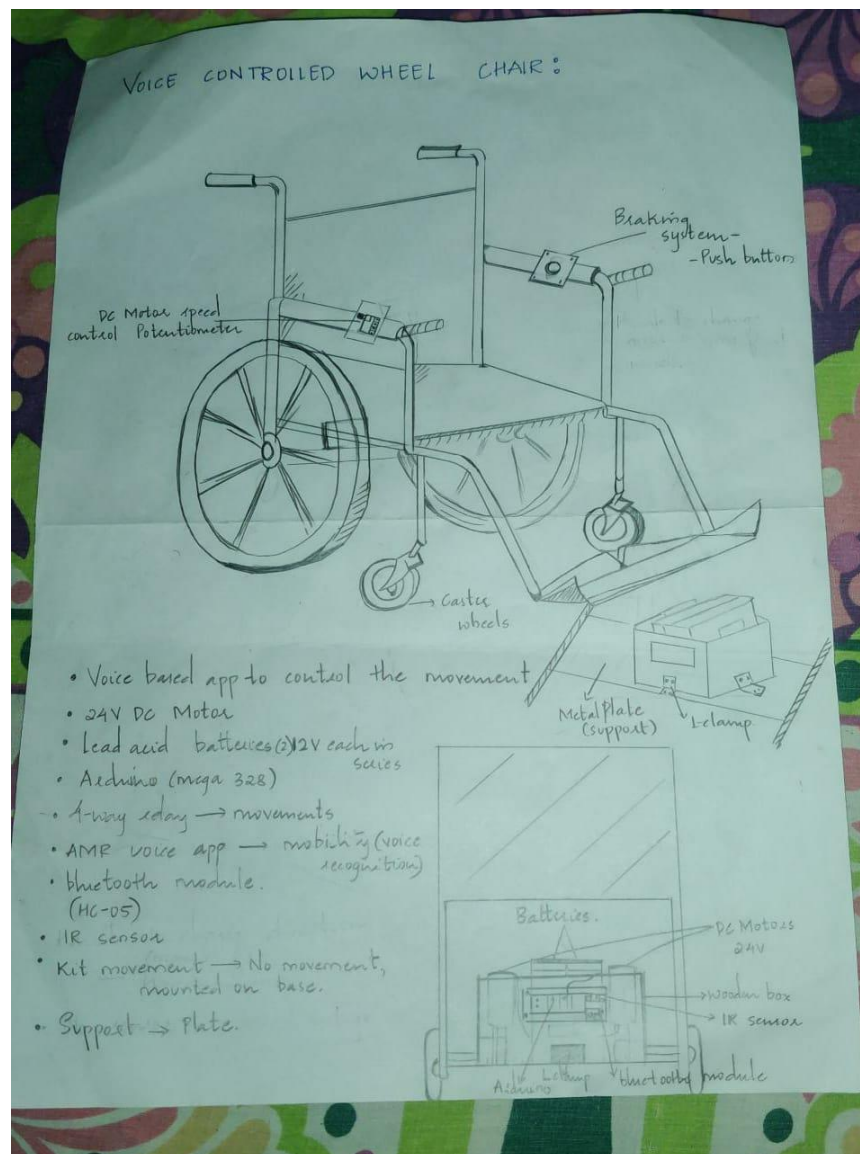 VOICE CONTROLLED WHEEL CHAIR:
Braking
system-
-Push button
DC Motor speed
control Potentiometer
Caster
wheels
• Voice based app to control the movement
• 24V DC Motor
• Lead acid batteries(2)12V each in
series
• Arduino (mega 328)
• 4-way relay → movements
• AMR voice app → mobility (voice
recognition)
• bluetooth module.
(HC-05)
• IR sensor
• Kit movement → No movement,
mounted on base.
• Support → Plate.
Metal plate
(support)
L-clamp
Batteries.
DC Motors
24V
wooden box
IR sensor
Arduino
L-clamp
bluetooth module